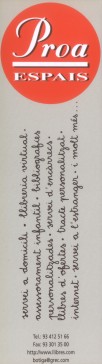 Proa
ESPAIS
servei a domicili · llibreria virtual ·
assessorament infantil · bibliografies
personalitzades · servei d'encàrrecs ·
llibres d'ofertes · tracte personalitzat ·
internet · servei a l'estranger · i molt més...
Tel.: 93 412 51 66
Fax: 93 301 35 00
http://www.llibres.com
botiga@grec.com